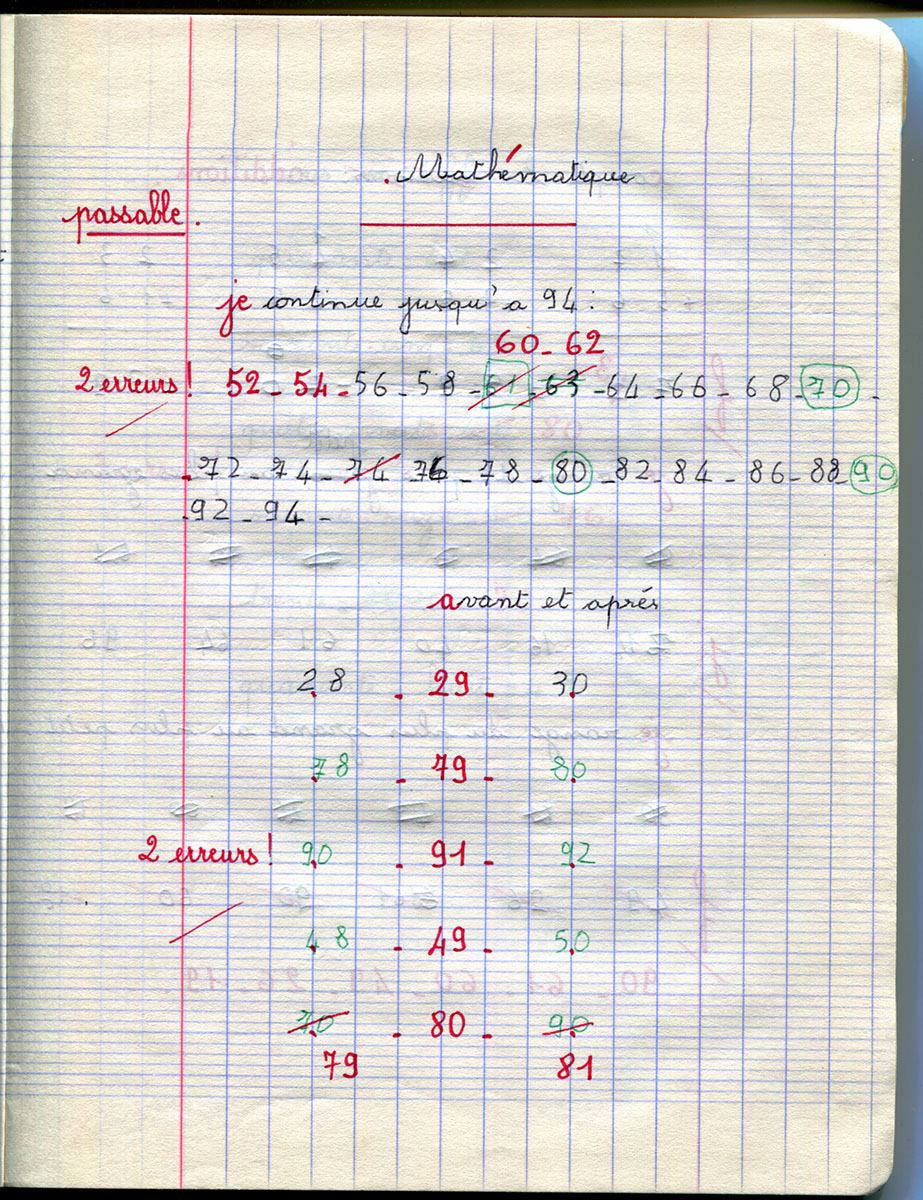 . Mathématique
passable.
je continue jusqu'a 94 :
60 - 62
2 erreurs ! 52 - 54 - 56 - 58 - 61 - 63 - 64 - 66 - 68 - 70 -
- 72 - 74 - 74 76 - 78 - 80 - 82 - 84 - 86 - 88 - 90
- 92 - 94 -
avant et aprés
28 - 29 - 30
78 - 79 - 80
2 erreurs ! 90 - 91 - 92
48 - 49 - 50
70 - 80 - 90
79 81